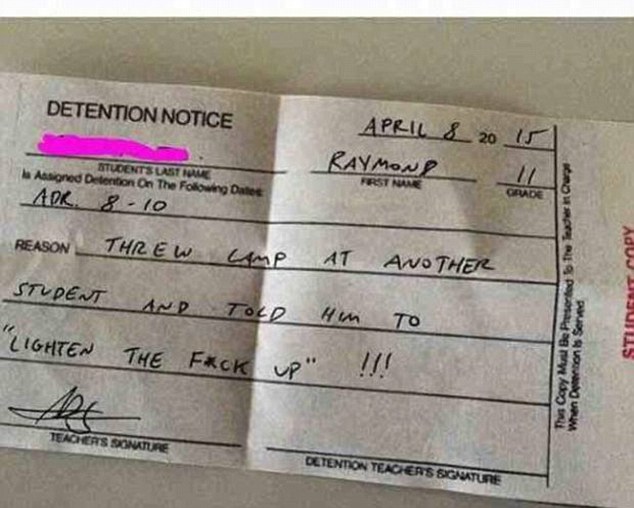 DETENTION NOTICE
APRIL 8 20 15
RAYMOND 11
STUDENT'S LAST NAME FIRST NAME GRADE
Is Assigned Detention On The Following Dates
APR. 8-10
REASON THREW LAMP AT ANOTHER
STUDENT AND TOLD HIM TO
"LIGHTEN THE F*CK UP" !!!
TEACHER'S SIGNATURE
DETENTION TEACHER'S SIGNATURE
This Copy Must Be Presented To The Teacher in Charge
When Detention Is Served
STUDENT COPY